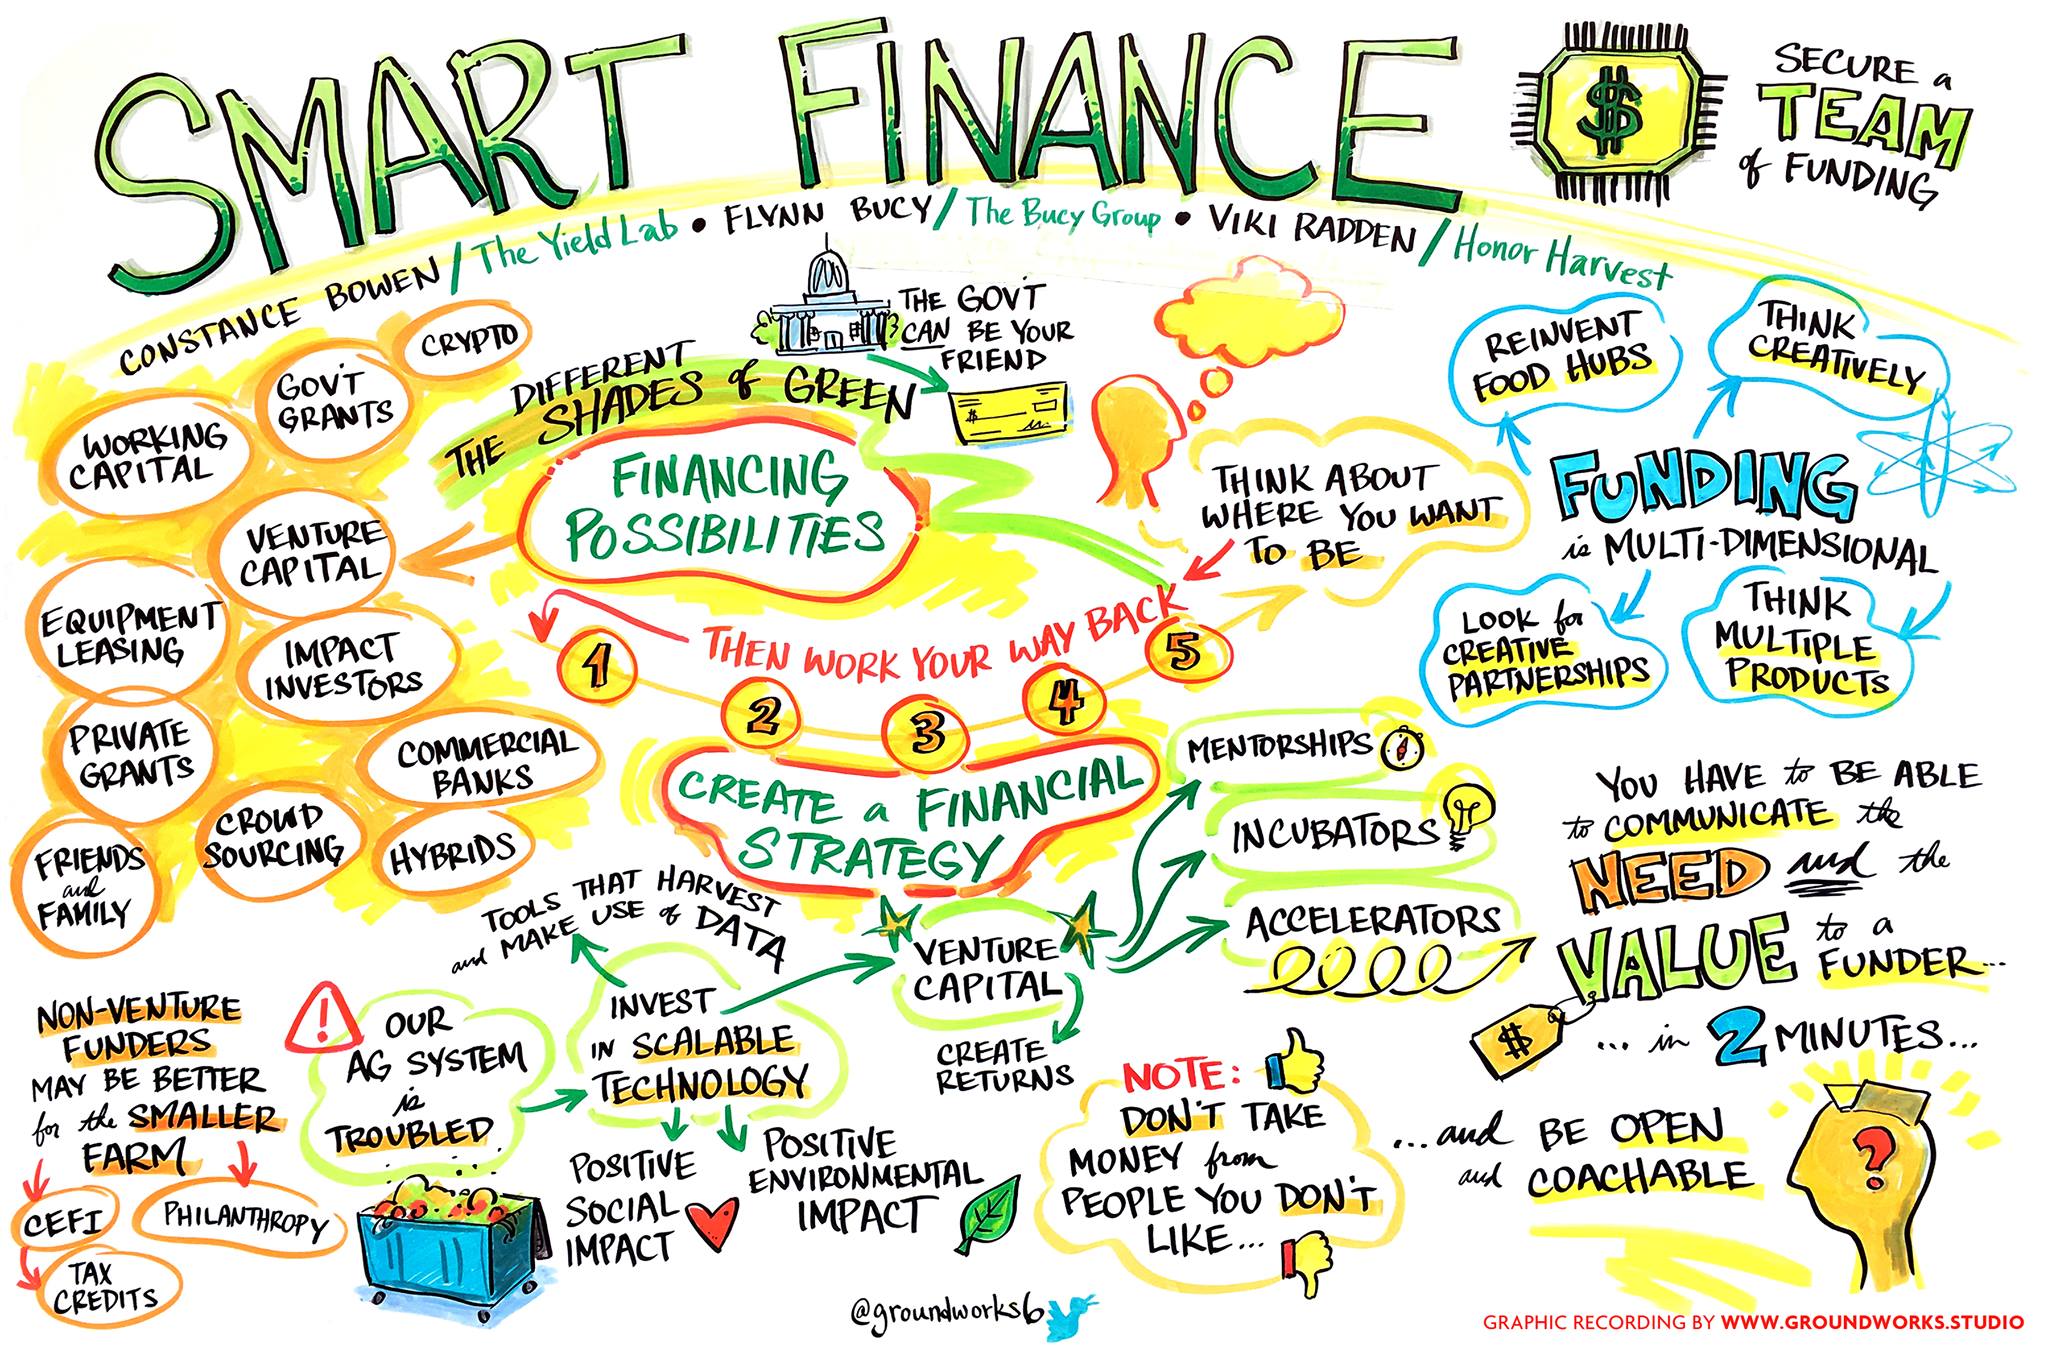 SMART FINANCE
SECURE a
TEAM
of FUNDING
CONSTANCE BOWEN / The Yield Lab • FLYNN BUCY / The Bucy Group • VIKI RADDEN / Honor Harvest
THE GOV'T
CAN BE YOUR
FRIEND
$
THE DIFFERENT
SHADES of GREEN
FINANCING
POSSIBILITIES
CRYPTO
GOV'T
GRANTS
WORKING
CAPITAL
VENTURE
CAPITAL
EQUIPMENT
LEASING
IMPACT
INVESTORS
PRIVATE
GRANTS
COMMERCIAL
BANKS
CROWD
SOURCING
HYBRIDS
FRIENDS
and
FAMILY
THINK ABOUT
WHERE YOU WANT
TO BE
THEN WORK YOUR WAY BACK
1
2
3
4
5
CREATE a FINANCIAL
STRATEGY
REINVENT
FOOD HUBS
THINK
CREATIVELY
FUNDING
is MULTI-DIMENSIONAL
LOOK for
CREATIVE
PARTNERSHIPS
THINK
MULTIPLE
PRODUCTS
MENTORSHIPS
INCUBATORS
ACCELERATORS
VENTURE
CAPITAL
CREATE
RETURNS
TOOLS THAT HARVEST
and MAKE USE of DATA
INVEST
IN SCALABLE
TECHNOLOGY
!
OUR
AG SYSTEM
is
TROUBLED
POSITIVE
SOCIAL
IMPACT
POSITIVE
ENVIRONMENTAL
IMPACT
NON-VENTURE
FUNDERS
MAY BE BETTER
for the SMALLER
FARM
CEFI
PHILANTHROPY
TAX
CREDITS
NOTE:
DON'T TAKE
MONEY from
PEOPLE YOU DON'T
LIKE...
YOU HAVE to BE ABLE
to COMMUNICATE the
NEED and the
VALUE to a
FUNDER...
$
... in 2 MINUTES...
...and BE OPEN
and COACHABLE
?
@groundworks6
GRAPHIC RECORDING BY WWW.GROUNDWORKS.STUDIO